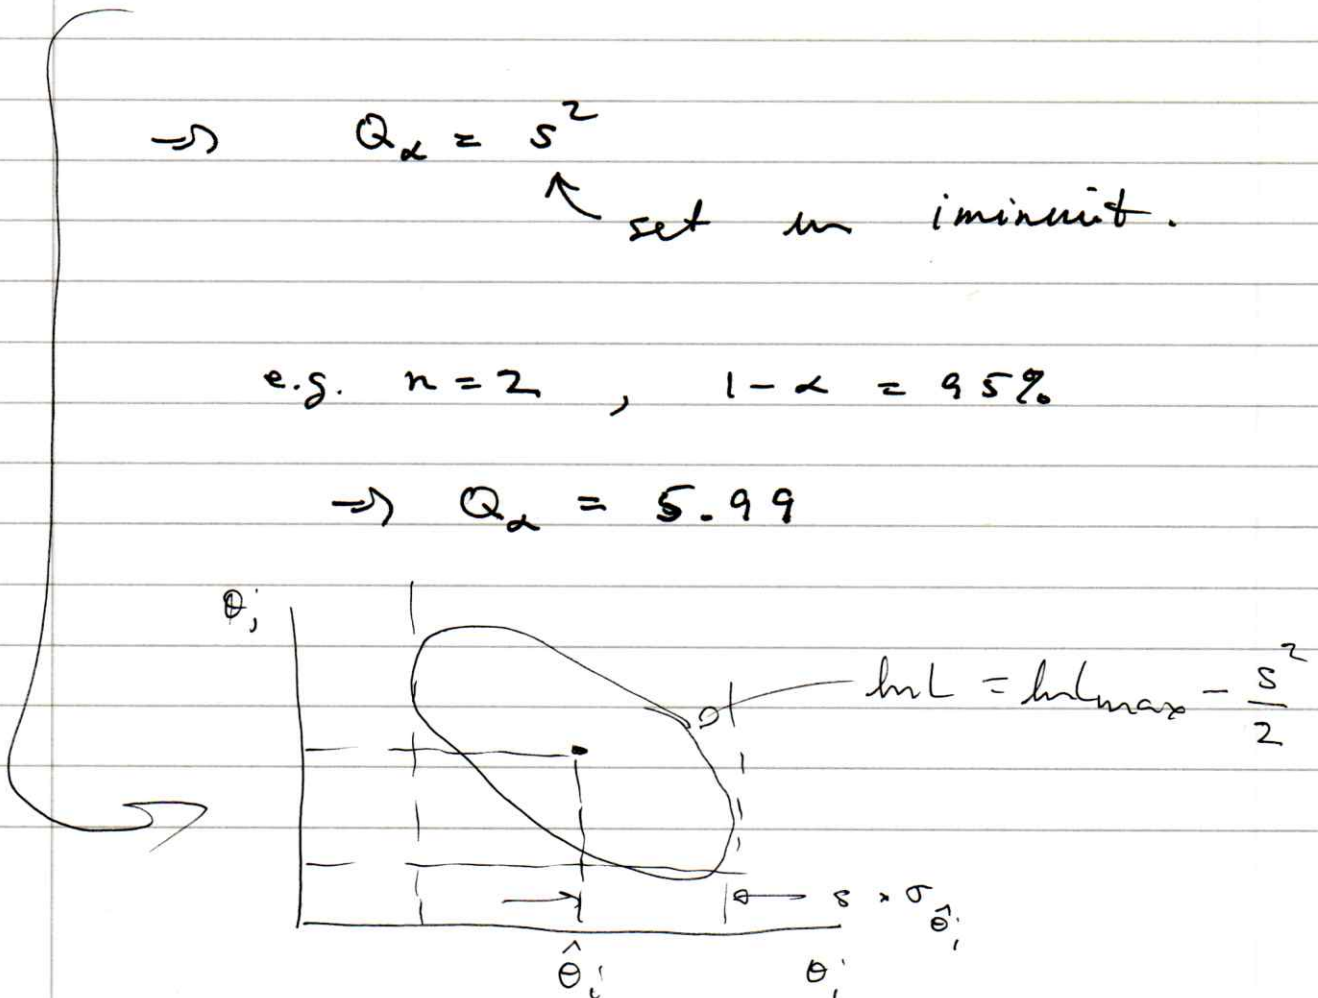 → Q_α = s²
↖ set in iminuit.
e.g. n = 2 , 1 - α = 95%
→ Q_α = 5.99
θ_j
ln L = ln L_max - s²/2
← s × σ_θ̂_i
θ̂_i θ_i